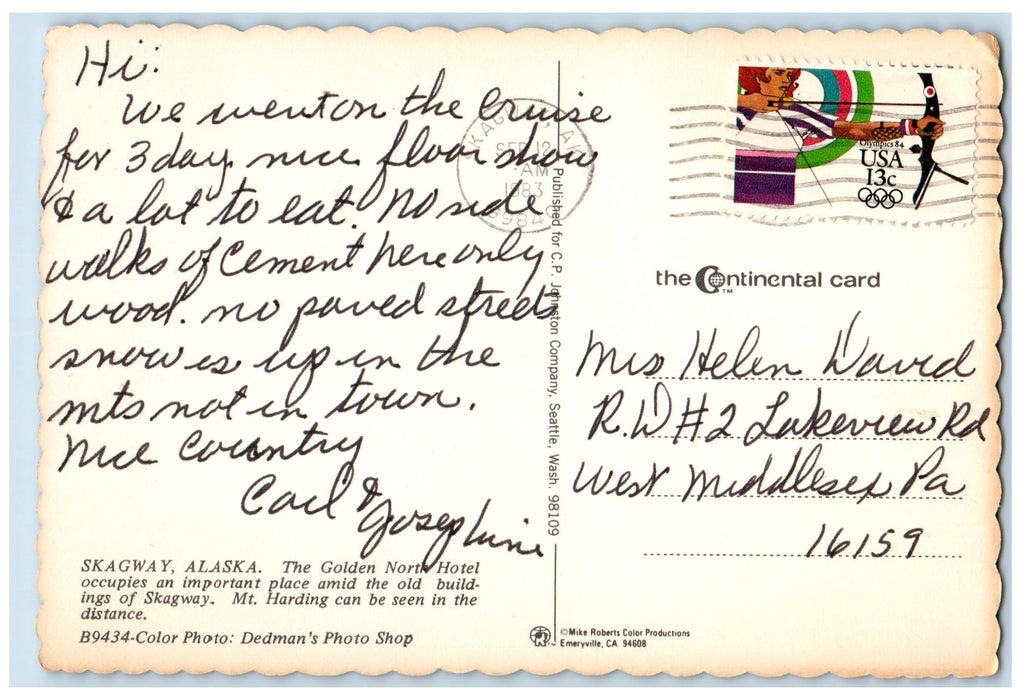 Hi:
We went on the Cruise
for 3 day. nice floor show
& a lot to eat. No side
walks of Cement here only
wood. no paved streets
snow is up in the
mts not in town.
Nice Country
Carl &
Josephine
SKAGWAY, ALASKA. The Golden North Hotel
occupies an important place amid the old build-
ings of Skagway. Mt. Harding can be seen in the
distance.
B9434-Color Photo: Dedman's Photo Shop
Published for C.P. Johnston Company, Seattle, Wash. 98109
©Mike Roberts Color Productions
Emeryville, CA 94608
SKAGWAY, AK
SEP 12
AM
1983
Olympics 84
USA
13c
the Continental card
TM
Mrs Helen David
R.D #2 Lakeview Rd
West Middlesex Pa
16159